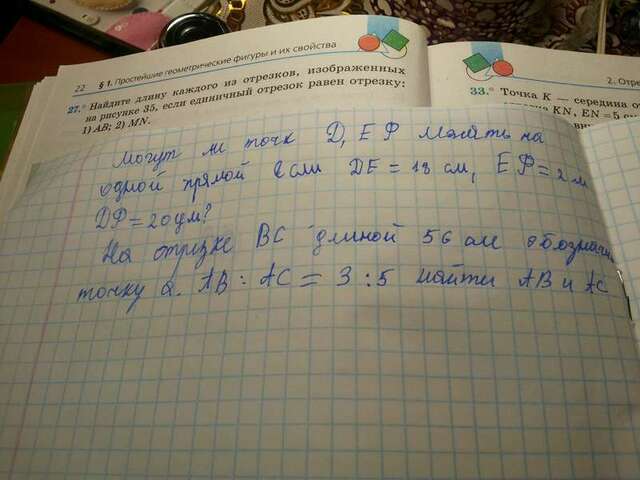 22 § 1. Простейшие геометрические фигуры и их свойства
27.° Найдите длину каждого из отрезков, изображенных
на рисунке 35, если единичный отрезок равен отрезку:
1) AB; 2) MN.
2. Отре
33.° Точка K — середина о
KN, EN = 5 с
Могут ли точк D, E P на
одной прямой если DE = 18 см, EP = 2 м
DP = 20 дм?
На отрезке BC длиной 56 см обозначи
точку a. AB : AC = 3 : 5 найти AB и AC